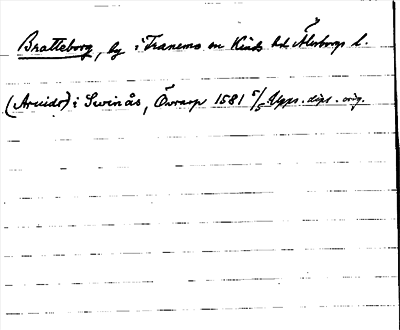 Bratteborg, by i Tranemo sn Kinds hd Älvsborgs l.
(Arvidr) i Swinås, Övrarp 1581 5/5 Upps. dipl. orig.